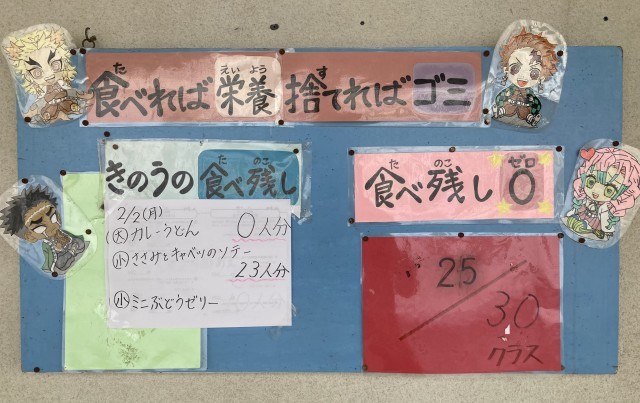 食べれば栄養 捨てればゴミ
きのうの食べ残し
2/2(月)
(大)カレーうどん 0人分
(小)ささみとキャベツのソテー
23人分
(小)ミニぶどうゼリー
食べ残し0
25/30
クラス